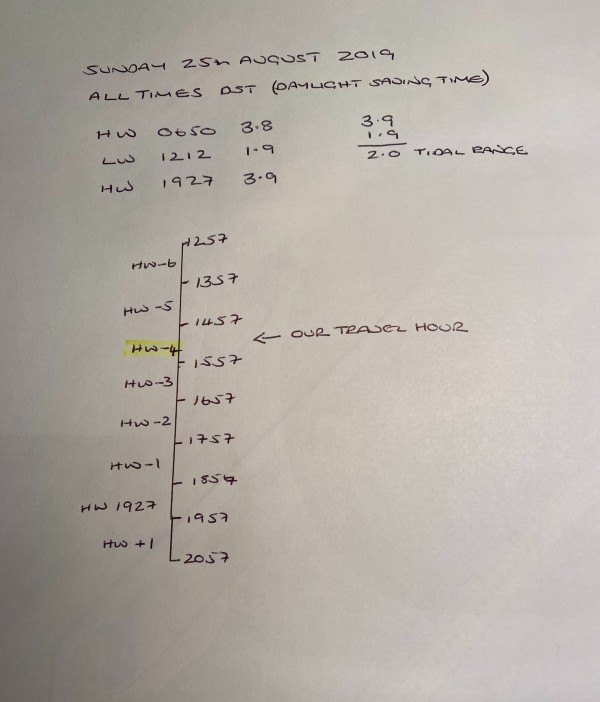 SUNDAY 25TH AUGUST 2019
ALL TIMES DST (DAYLIGHT SAVING TIME)
HW 0650 3.8
LW 1212 1.9
HW 1927 3.9
3.9
1.9
2.0 TIDAL RANGE
1257
HW-6
1357
HW-5
1457
← OUR TRAVEL HOUR
HW-4
1557
HW-3
1657
HW-2
1757
HW-1
1857
HW 1927
1957
HW +1
2057